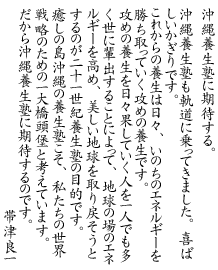 沖縄養生塾に期待する。
沖縄養生塾も軌道に乗ってきました。喜ば
しいかぎりです。
これからの養生は日々、いのちのエネルギーを
勝ち取っていく攻めの養生です。
攻めの養生を日々果していく人を一人でも多
く世に輩出することによって、地球の場のエネ
ルギーを高め、美しい地球を取り戻そうと
するのが二十一世紀養生塾の目的です。
癒しの島沖縄の養生塾こそ、私たちの世界
戦略のための一大橋頭堡と考えています。
だから沖縄養生塾に期待するのです。
帯津良一